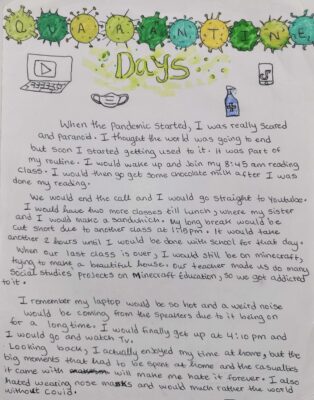 QUARANTINE
Days
When the pandemic started, I was really scared
and paranoid. I thought the world was going to end
but soon I started getting used to it. It was part of
my routine. I would wake up and join my 8:45 am reading
class. I would then go get some chocolate milk after I was
done my reading.
We would end the call and I would go straight to Youtube.
I would have two more classes till lunch, where my sister
and I would make a sandwich. My long break would be
cut short due to another class at 1:18pm. It would take
another 2 hours until I would be done with school for that day.
When our last class is over, I would still be on minecraft,
trying to make a beautiful house. Our teacher made us do many
Social studies projects on Minecraft Education, so we got addicted
to it.
I remember my laptop would be so hot and a weird noise
would be coming from the speakers due to it being on
for a long time. I would finally get up at 4:10 pm and
I would go and watch Tv.
Looking back, I actually enjoyed my time at home, but the
big moments that had to be spent at home and the casualties
it came with will make me hate it forever. I also
hated wearing nose masks and would much rather the world
without Covid.